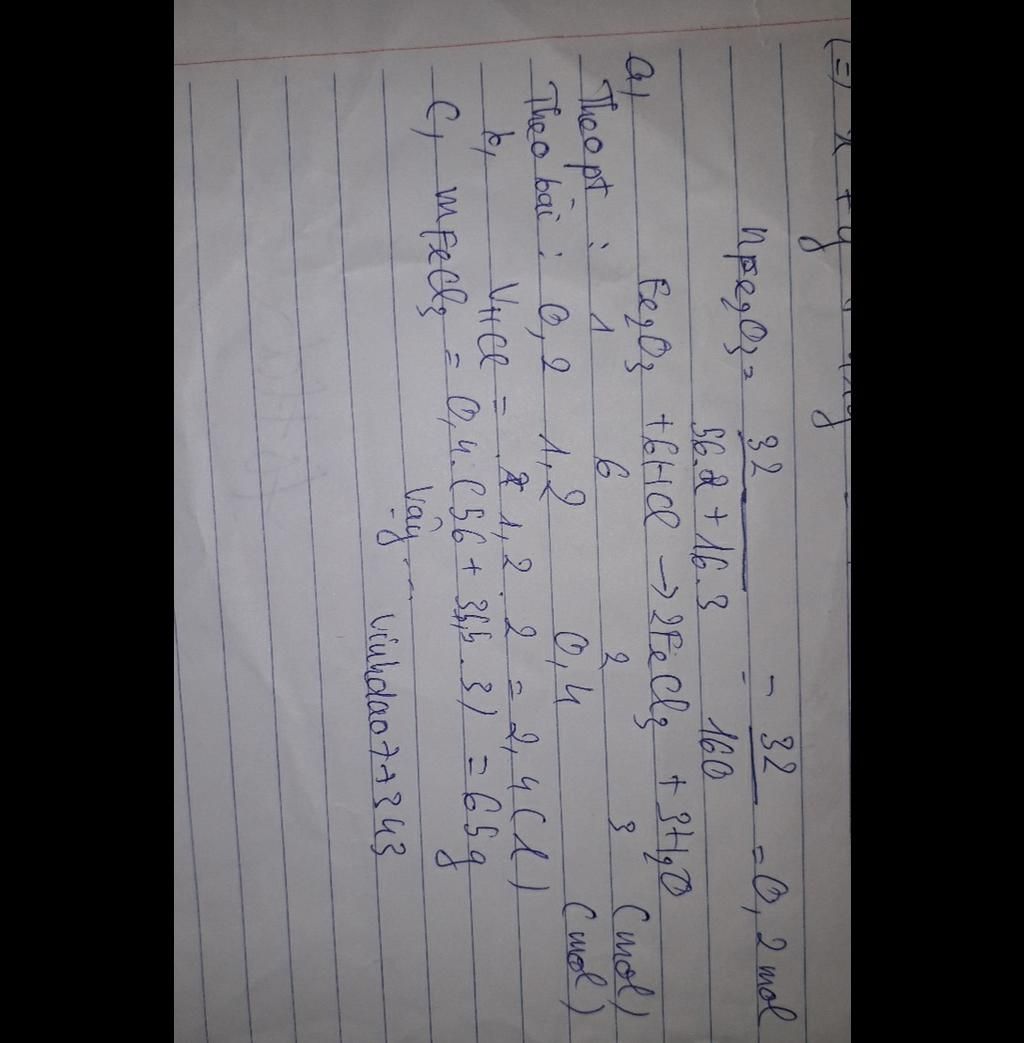 (=) x + y
nFe₂O₃ = 32 / 56.2 + 16.3 = 32 / 160 = 0,2 mol
a, Fe₂O₃ + 6HCl → 2FeCl₃ + 3H₂O
Theo pt : 1 6 2 3 (mol)
Theo bài : 0,2 1,2 0,4 (mol)
b, VHCl = 1,2 . 2 = 2,4 (l)
C, mFeCl₃ = 0,4.(56 + 35,5.3) = 65g
Vậy ...
vinhdao7+343